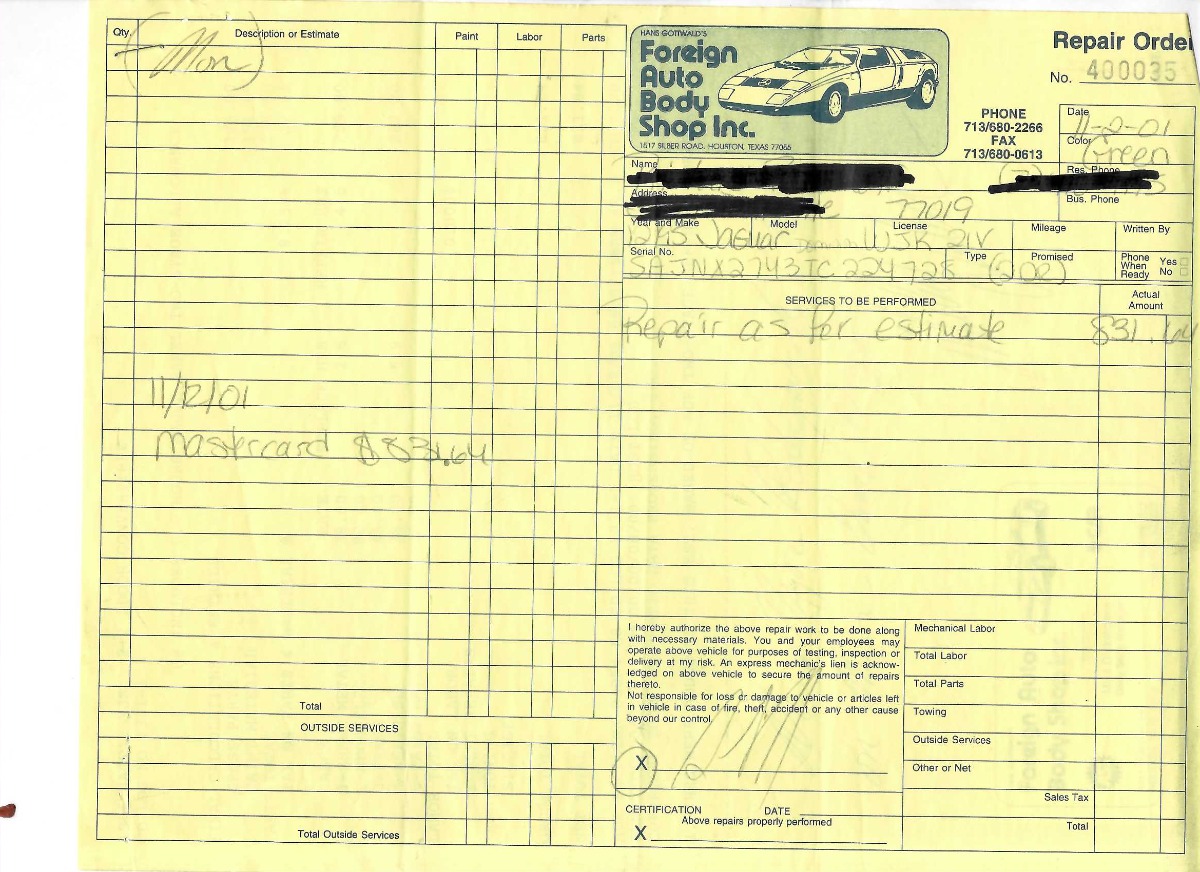 Qty. Description or Estimate Paint Labor Parts
(Mon)
11/12/01
Mastercard $831.64
Total
OUTSIDE SERVICES
Total Outside Services
HANS GOTTWALD'S
Foreign
Auto
Body
Shop Inc.
1517 SILBER ROAD, HOUSTON, TEXAS 77055
PHONE
713/680-2266
FAX
713/680-0613
Repair Order
No. 400035
Date
11-2-01
Color
Green
Name
Res. Phone
Address
Bus. Phone
77019
Year and Make Model License Mileage Written By
Jaguar WJK 21V
Serial No. Type Promised Phone When Ready Yes No
SAJNX2743TC224728 (200)
SERVICES TO BE PERFORMED Actual Amount
Repair as for estimate 831.64
I hereby authorize the above repair work to be done along
with necessary materials. You and your employees may
operate above vehicle for purposes of testing, inspection or
delivery at my risk. An express mechanic's lien is acknow-
ledged on above vehicle to secure the amount of repairs
thereto.
Not responsible for loss or damage to vehicle or articles left
in vehicle in case of fire, theft, accident or any other cause
beyond our control.
X
CERTIFICATION DATE
Above repairs properly performed
X
Mechanical Labor
Total Labor
Total Parts
Towing
Outside Services
Other or Net
Sales Tax
Total